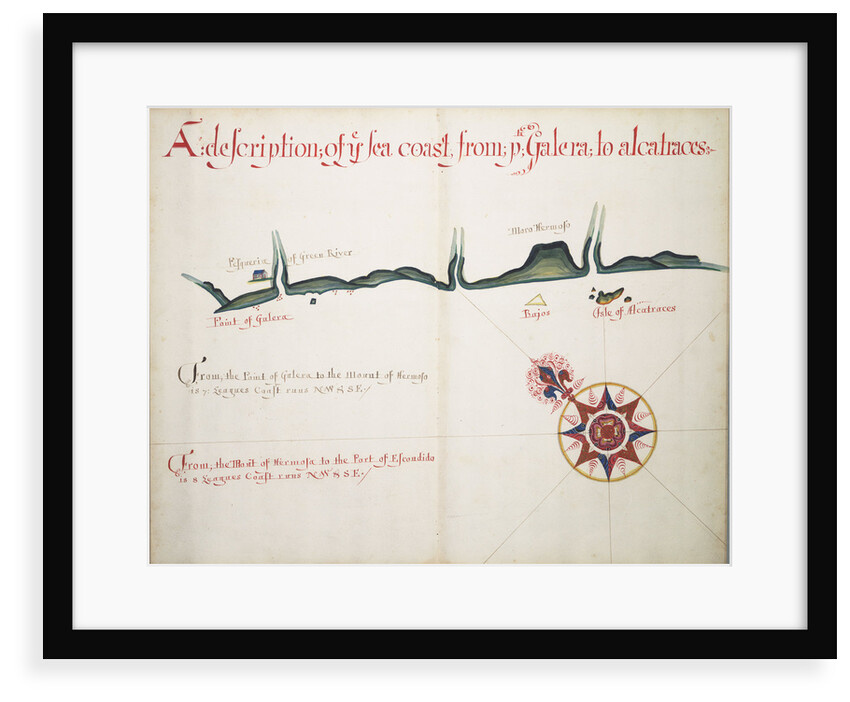 A: description; of yͤ sea coast, from; pᵗ; Galera; to alcatraces:~
Moro Hermoso
Pesqueria of Green River
Point of Galera
Bajos
Isle of Alcatraces
From, the Point of Galera to the Mount of Hermoso
is 7: Leagues Coast runs NW & SE/
From, the Mont of Hermosa to the Port of Escondido
is 8 Leagues Coast runs NW & SE/